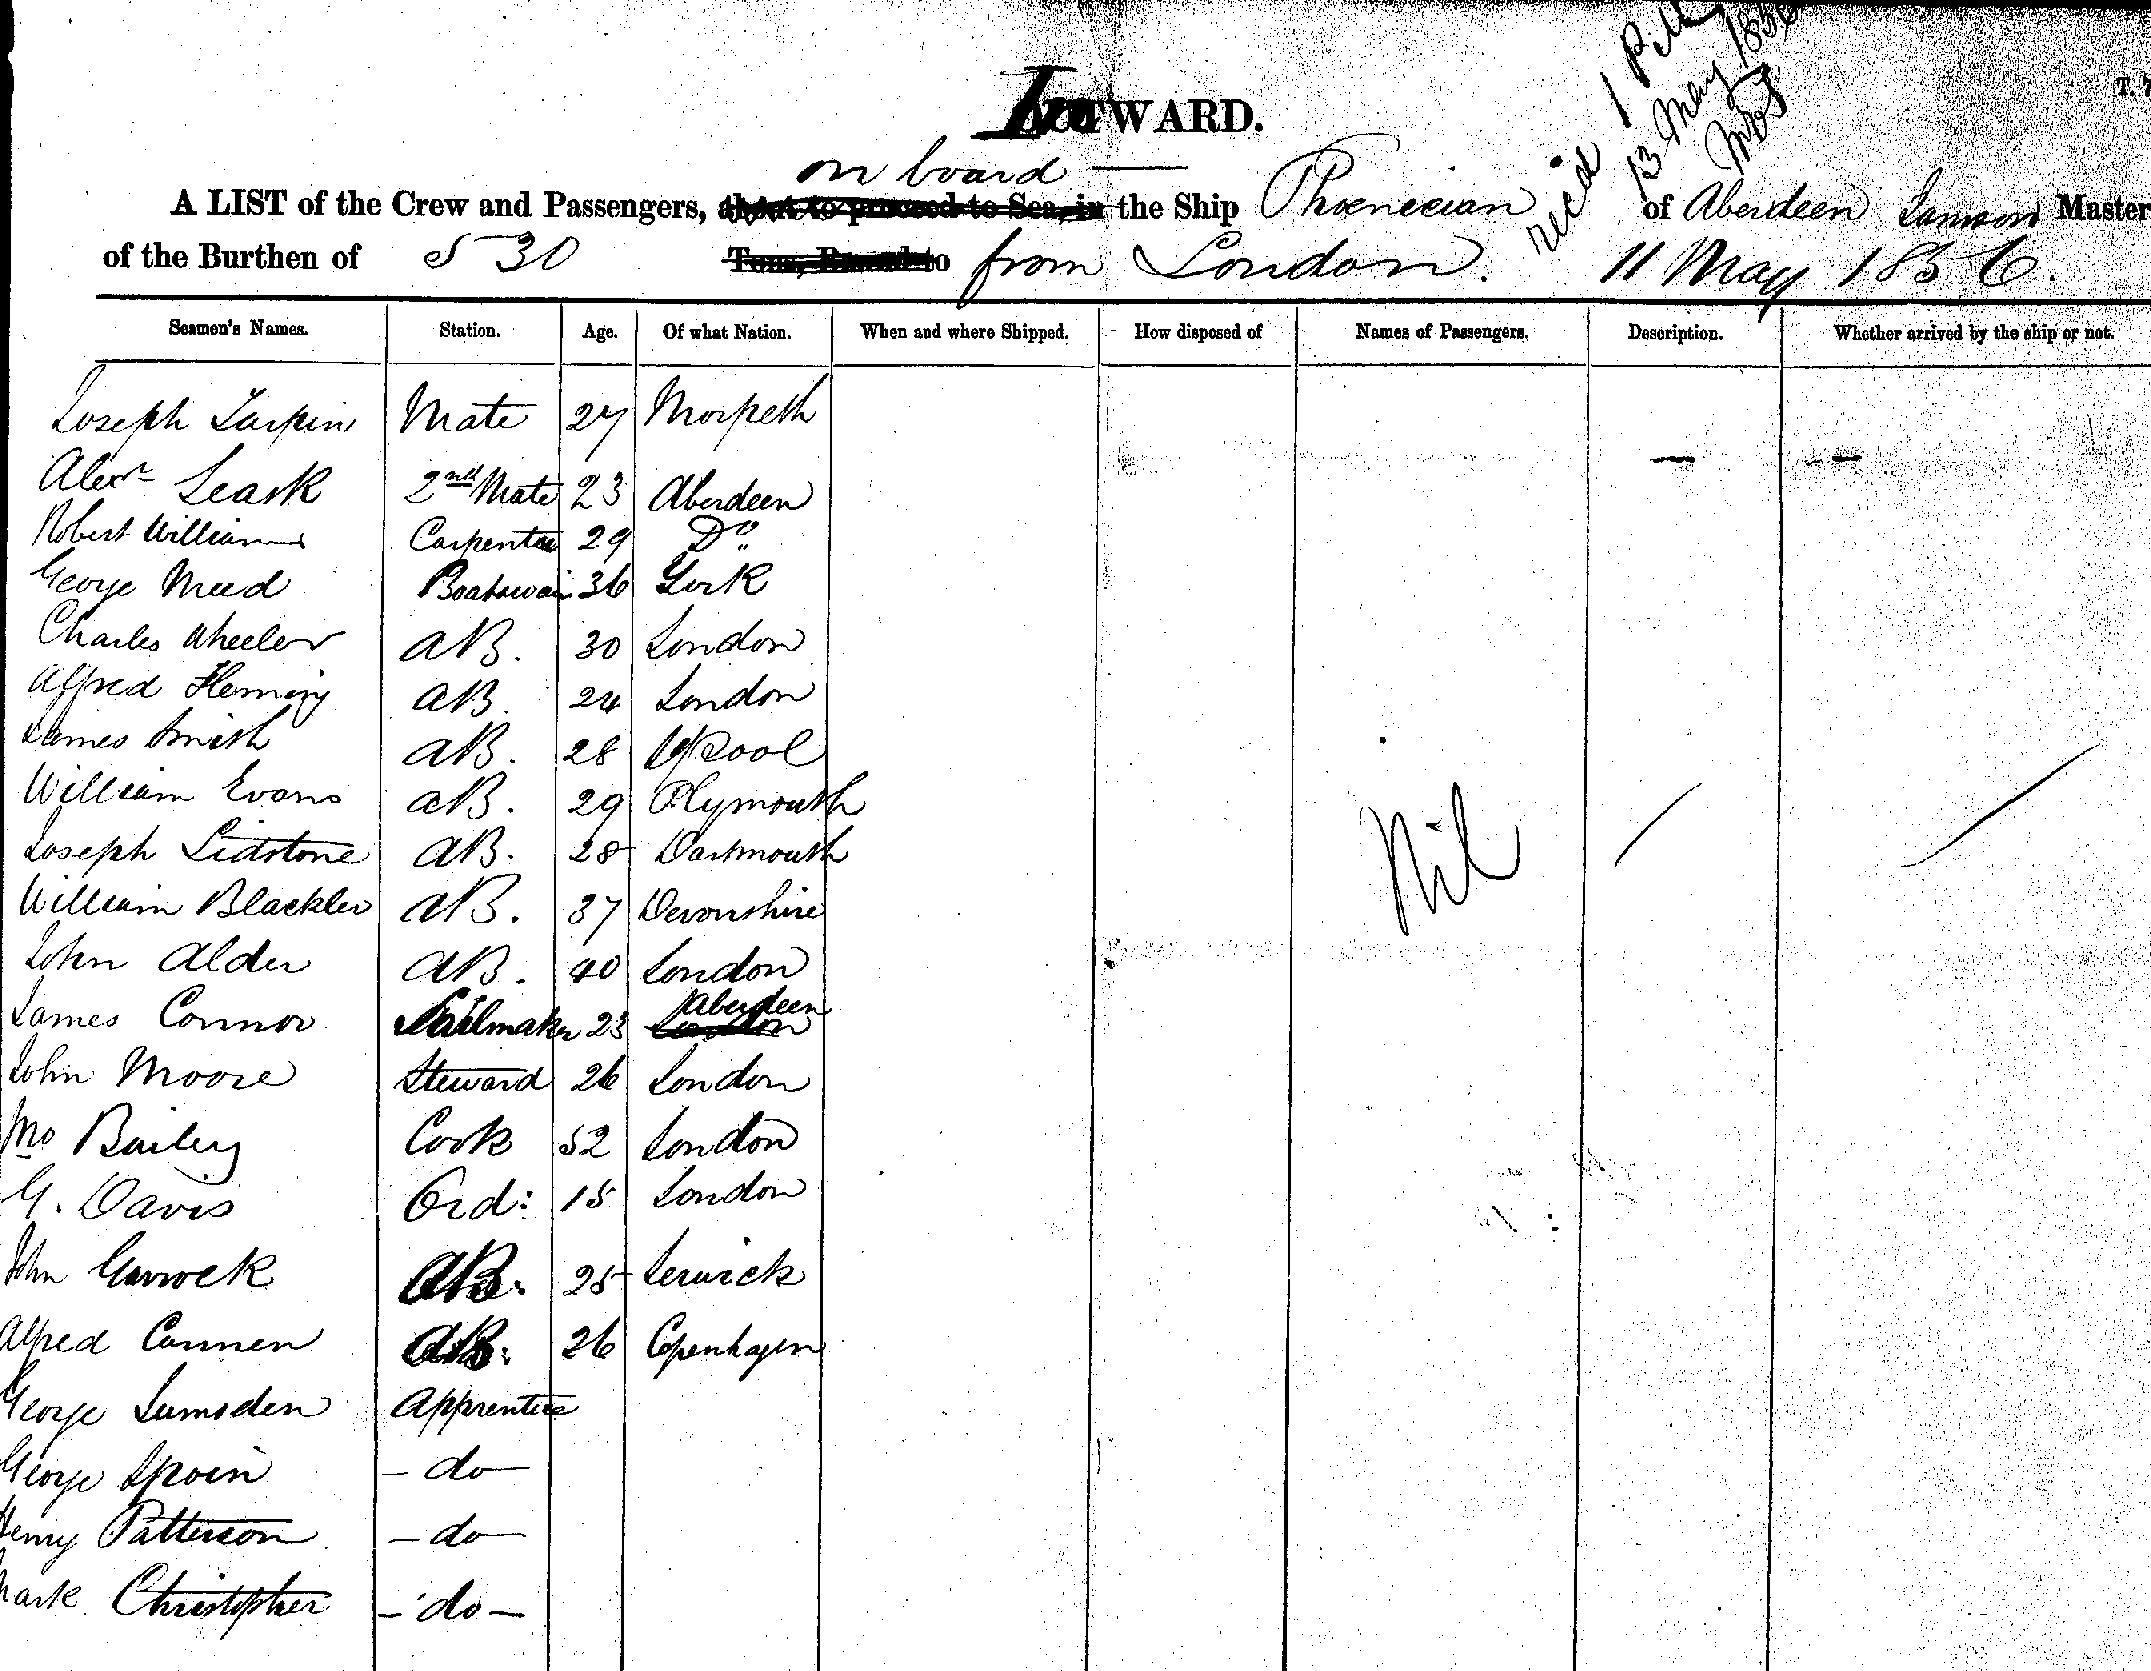 recd 1 P
13 May 1856
InWARD.
on board
A LIST of the Crew and Passengers, about to proceed to Sea, in the Ship Phoenecian of Aberdeen Jamson Master
of the Burthen of 530 Tons, Bound to from London. 11 May 1856.
Seamen's Names. Station. Age. Of what Nation. When and where Shipped. How disposed of Names of Passengers. Description. Whether arrived by the ship or not.
Joseph Tarpin Mate 27 Morpeth
Alexr Leask 2nd Mate 23 Aberdeen — —
Robert Williams Carpenter 29 Do
George Meed Boatswain 36 York
Charles Wheeler AB. 30 London
Alfred Fleming AB 24 London
James Smith AB. 28 L'pool
William Evans AB. 29 Plymouth Nil
Joseph Lidstone AB. 28 Dartmouth
William Blackler AB. 37 Devonshire
John Alder AB. 40 London
James Connor Sailmaker 23 London Aberdeen
John Moore Steward 26 London
Bailey Cook 52 London
G. Davis Ord: 15 London
John Garrock AB. 25 Lerwick
Alfred Cannen AB: 26 Copenhagen
George Lumsden Apprentice
George Spoin - do -
Henry Patterson - do -
Mark Christopher - do -